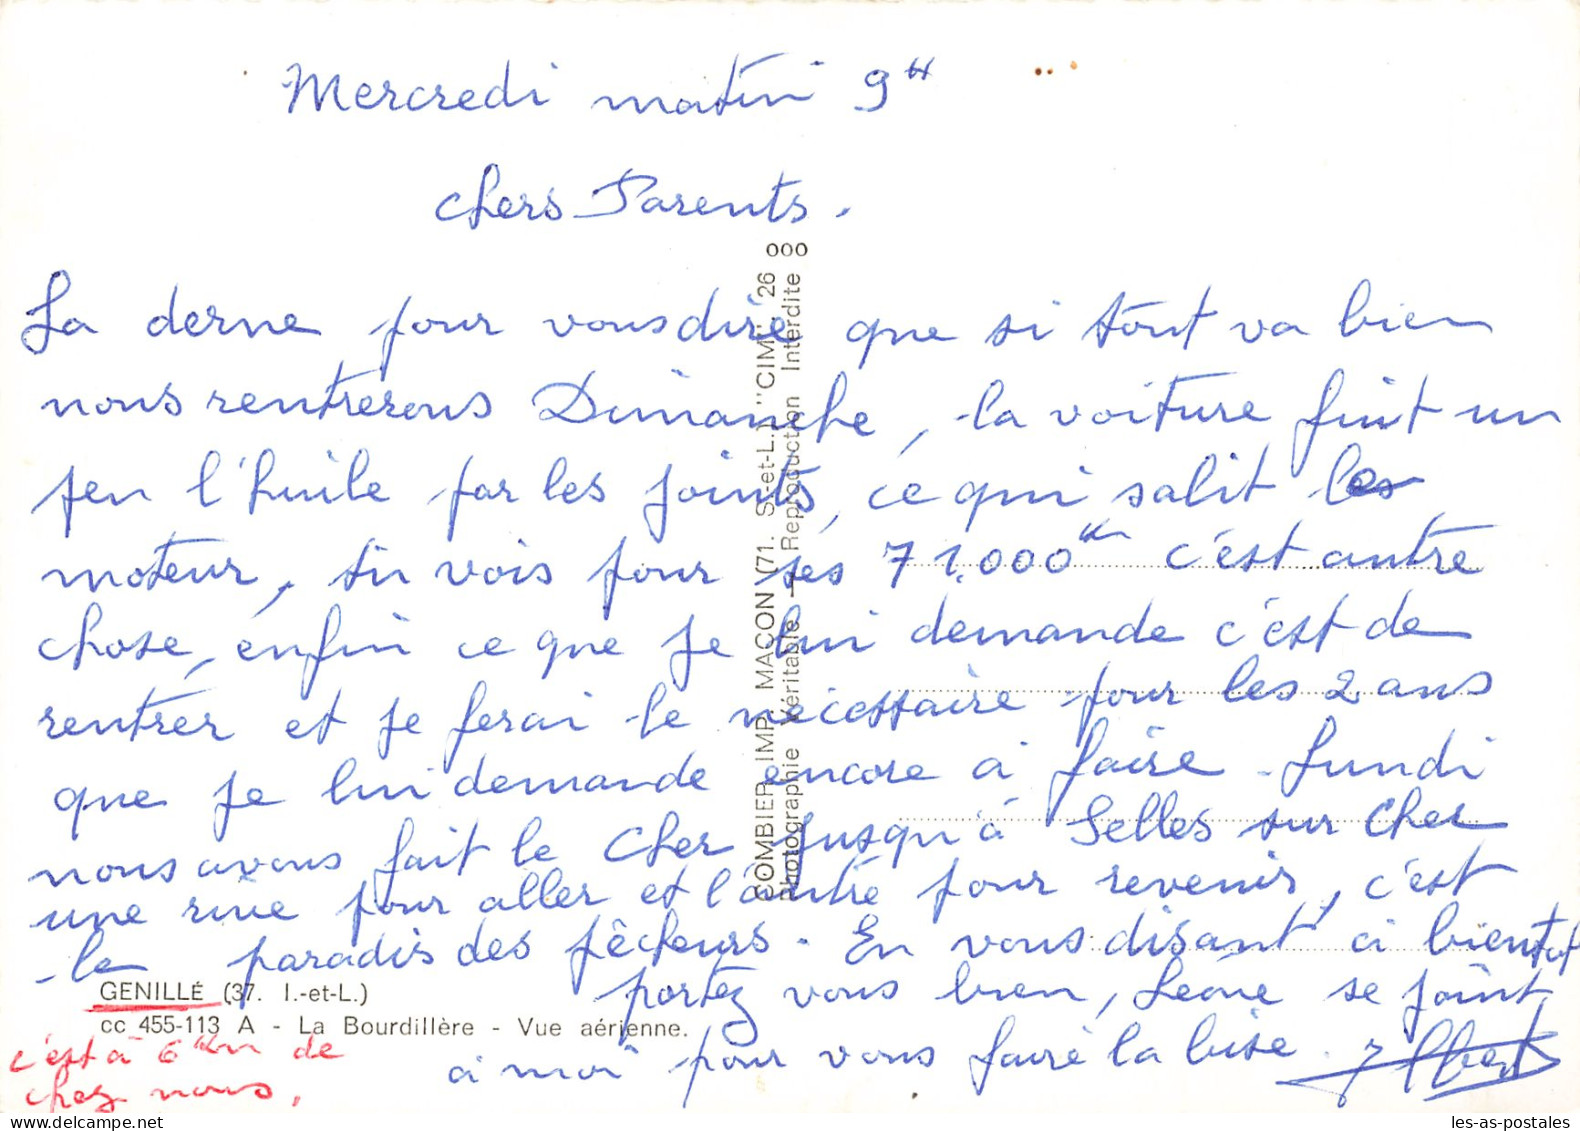 Mercredi matin 9H
Chers Parents.
La derne pour vous dire que si tout va bien
nous rentrerons Dimanche, la voiture fuit un
peu l'huile par les joints, ce qui salit les
moteur, tu vois pour ses 71.000 km c'est autre
chose, enfin ce que je lui demande c'est de
rentrer et je ferai le nécessaire pour les 2 ans
que je lui demande encore à faire. Lundi
nous avons fait le Cher jusqu'à Selles sur Cher
une rive pour aller et l'autre pour revenir, c'est
le paradis des pêcheurs. En vous disant à bientot
portez vous bien, Léone se joint
à moi pour vous faire la bise. Albert
GENILLÉ (37. I.-et-L.)
cc 455-113 A - La Bourdillère - Vue aérienne.
c'est à 6 km de
chez nous.
COMBIER IMP. MACON (71. S.-et-L.) "CIM" 26 000
Photographie Véritable - Reproduction Interdite
les-as-postales